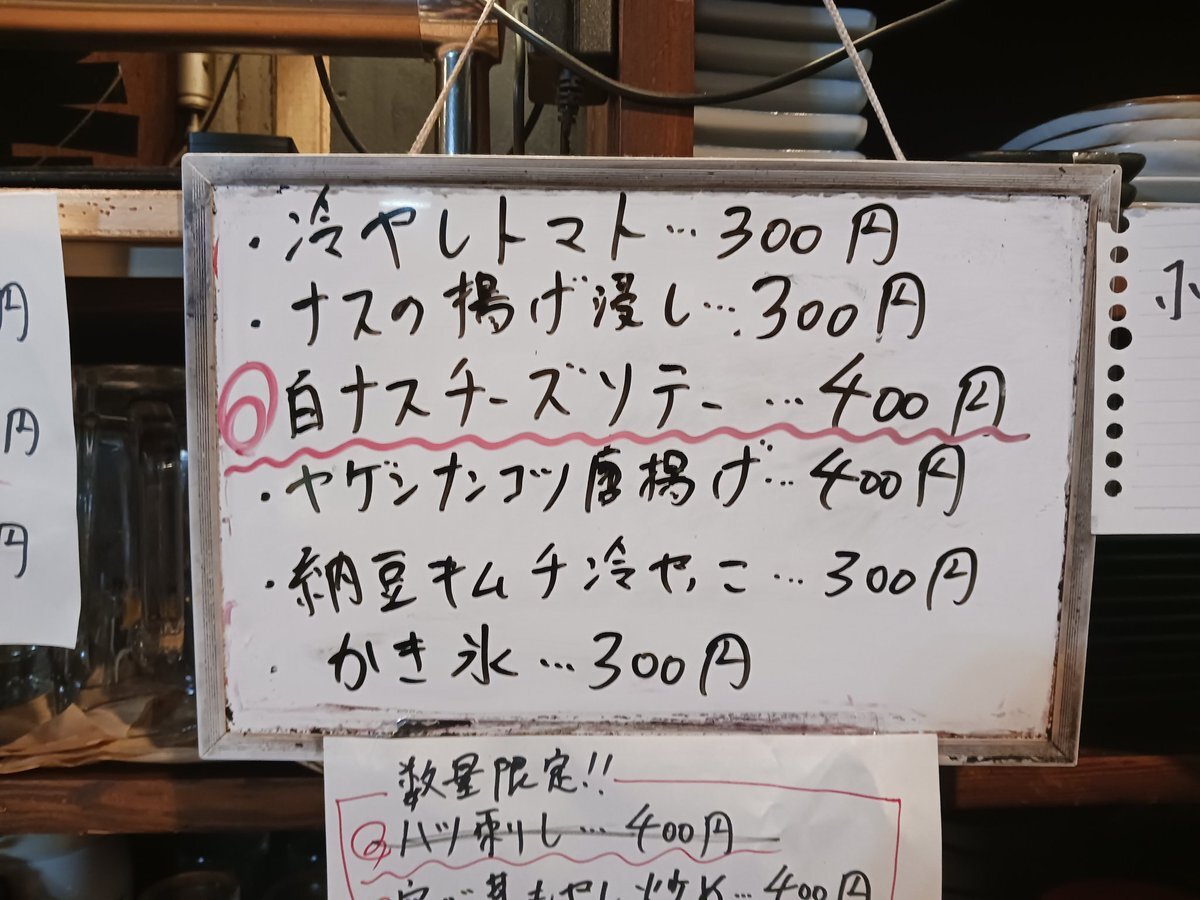 ・冷やしトマト…300円
・ナスの揚げ浸し…300円
◎白ナスチーズソテー…400円
・ヤゲンナンコツ唐揚げ…400円
・納豆キムチ冷やっこ…300円
・かき氷…300円
数量限定!!
◎ハツ刺し…400円
炒め…400円
円
円
円
小